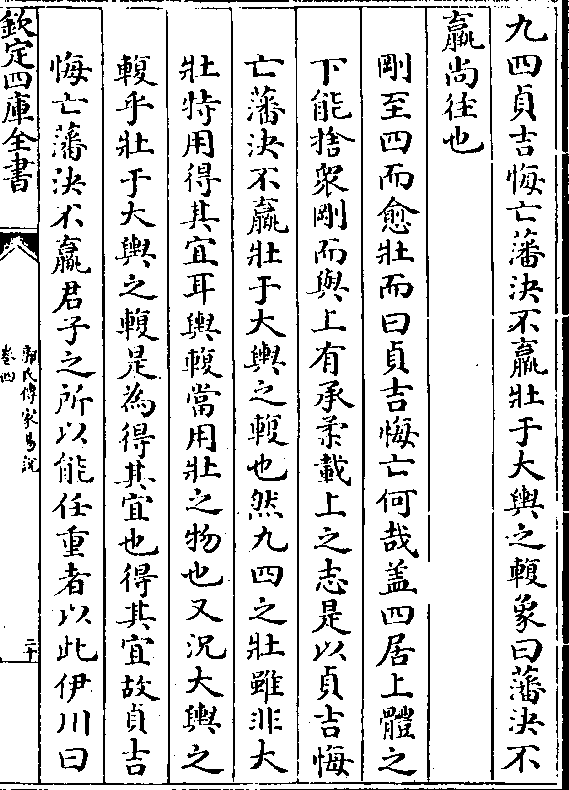 九四貞吉悔亡藩決不羸壯于大輿之輹象曰藩決不
羸尚往也
剛至四而愈壯而曰貞吉悔亡何哉盖四居上體之
下能捨衆剛而與上有承柔載上之志是以貞吉悔
亡藩決不羸壯于大輿之輹也然九四之壯雖非大
壯特用得其宜耳輿輹當用壯之物也又況大輿之
輹乎壯于大輿之輹是為得其宜也得其宜故貞吉
悔亡藩決不羸君子之所以能任重者以此伊川曰
欽定四庫全書
郭氏傳家易說
卷四
二十